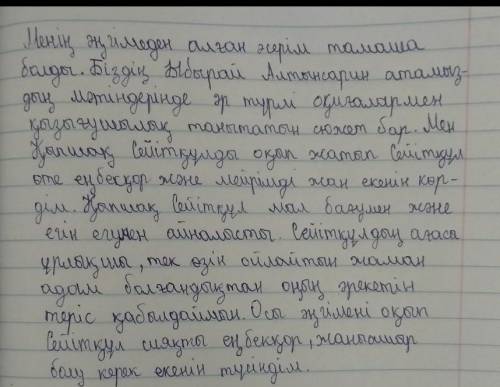 Менің әңгімеден алған әсерім тамаша
болды. Біздің Ыбырай Алтынсарин атамыз-
дың мәтіндерінде әр түрлі оқиғалырмен
қызығушылық танытатын сюжет бар. Мен
Қыпшақ Сейітқұлды оқып жатып Сейітқұл
өте еңбекқор және мейірімді жан екенін көр-
дім. Қыпшақ Сейітқұл мал бағумен және
егін егумен айналысты. Сейітқұлдың ағасы
ұрлықшы, тек өзін ойлайтын жаман
адам болғандықтан оның әрекетін
теріс қабылдаймын. Осы әңгімені оқып
Сейітқұл сияқты еңбекқор, жанашыр
болу керек екенін түсіндім.